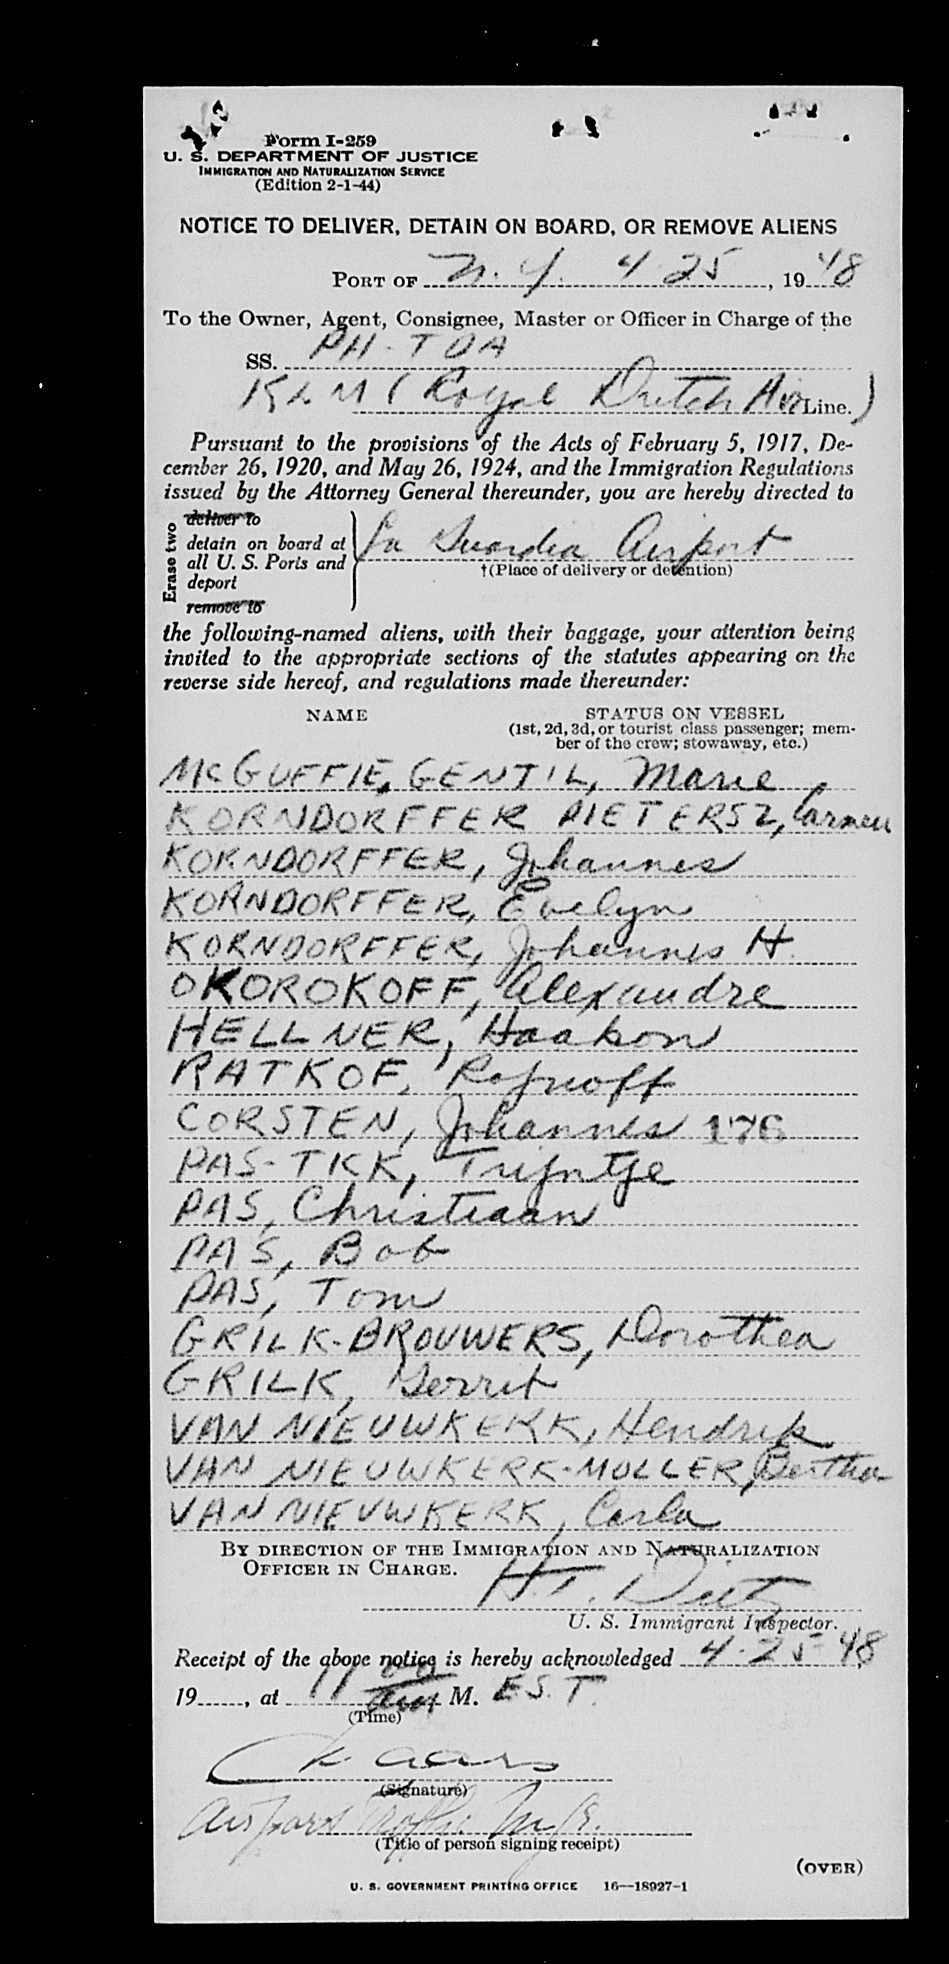 Form I-259
U. S. DEPARTMENT OF JUSTICE
IMMIGRATION AND NATURALIZATION SERVICE
(Edition 2-1-44)
NOTICE TO DELIVER, DETAIN ON BOARD, OR REMOVE ALIENS
PORT OF N. Y. 4 25, 1948
To the Owner, Agent, Consignee, Master or Officer in Charge of the
SS. PH-TDA
KLM (Royal Dutch Air Line.)
Pursuant to the provisions of the Acts of February 5, 1917, De-
cember 26, 1920, and May 26, 1924, and the Immigration Regulations
issued by the Attorney General thereunder, you are hereby directed to
Erase two
deliver to
detain on board at
all U. S. Ports and
deport
remove to
La Guardia Airport
†(Place of delivery or detention)
the following-named aliens, with their baggage, your attention being
invited to the appropriate sections of the statutes appearing on the
reverse side hereof, and regulations made thereunder:
NAME STATUS ON VESSEL
(1st, 2d, 3d, or tourist class passenger; mem-
ber of the crew; stowaway, etc.)
MCGUFFIE, GENTIL, Marie
KORNDORFFER PIETERSZ, Carmen
KORNDORFFER, Johannes
KORNDORFFER, Evelyn
KORNDORFFER, Johannes H.
OKOROKOFF, Alexandre
HELLNER, Haakon
RATKOF,
CORSTEN, Johannes 176
PAS-TICK, Trijntje
PAS, Christiaan
PAS, Bob
PAS, Tom
GRILK-BROUWERS, Dorothea
GRILK, Gerrit
VAN NIEUWKERK, Hendrik
VAN NIEUWKERK-MOLLER, Bertha
VAN NIEUWKERK, Carla
BY DIRECTION OF THE IMMIGRATION AND NATURALIZATION
OFFICER IN CHARGE.
H. Dietz
U. S. Immigrant Inspector.
Receipt of the above notice is hereby acknowledged 4-25-48
19......, at 11 00 am M. E.S.T.
(Time)
(Signature)
Airport Traffic Mgr.
(Title of person signing receipt)
(OVER)
U. S. GOVERNMENT PRINTING OFFICE 16—18927-1